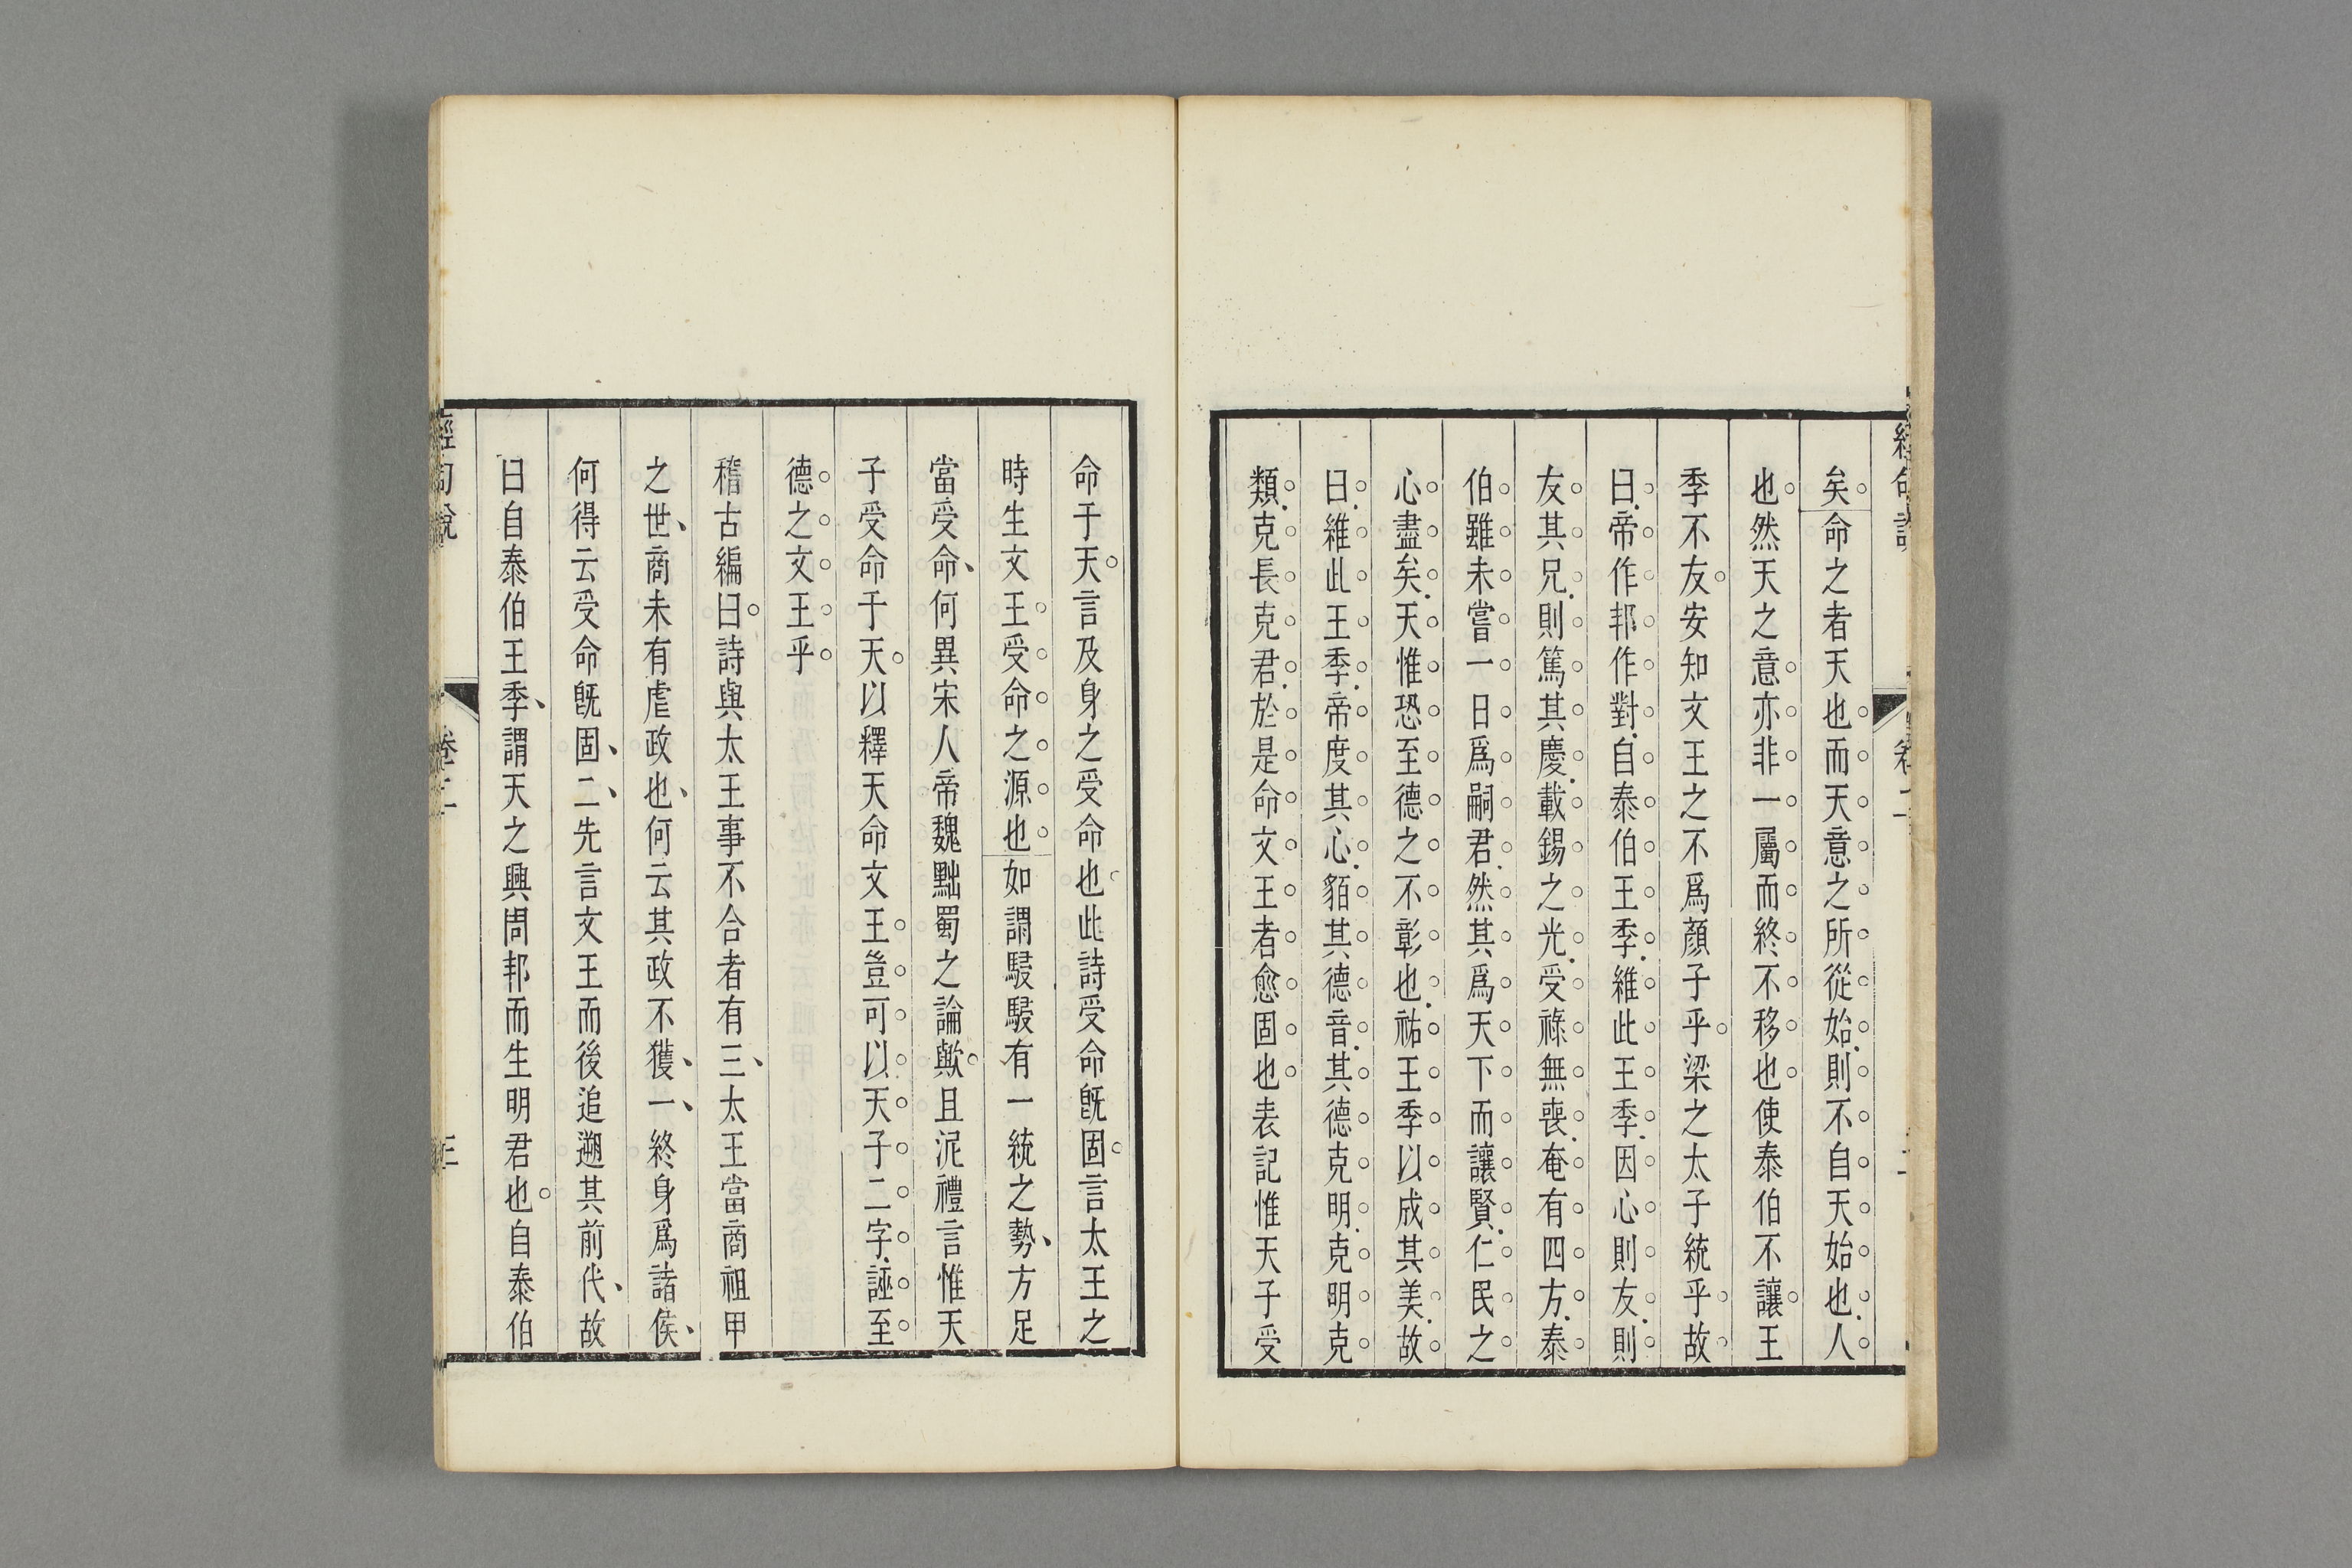 矣命之者天也而天意之所從始則不自天始也人
也然天之意亦非一屬而終不移也使泰伯不讓王
季不友安知文王之不爲顏子乎梁之太子統乎故
曰帝作邦作對自泰伯王季維此王季因心則友則
友其兄則篤其慶載錫之光受祿無喪奄有四方泰
伯雖未嘗一日爲嗣君然其爲天下而讓賢仁民之
心盡矣天惟恐至德之不彰也祐王季以成其美故
曰維此王季帝度其心貊其德音其德克明克明克
類克長克君於是命文王者愈固也表記惟天子受
命于天言及身之受命也此詩受命旣固言太王之
時生文王受命之源也如謂駸駸有一統之勢方足
當受命何異宋人帝魏黜蜀之論歟且泥禮言惟天
子受命于天以釋天命文王豈可以天子二字誣至
德之文王乎
稽古編曰詩與太王事不合者有三太王當商祖甲
之世商未有虐政也何云其政不獲一終身爲諸侯
何得云受命旣固二先言文王而後追遡其前代故
曰自泰伯王季謂天之興周邦而生明君也自泰伯
經句說
卷二
三